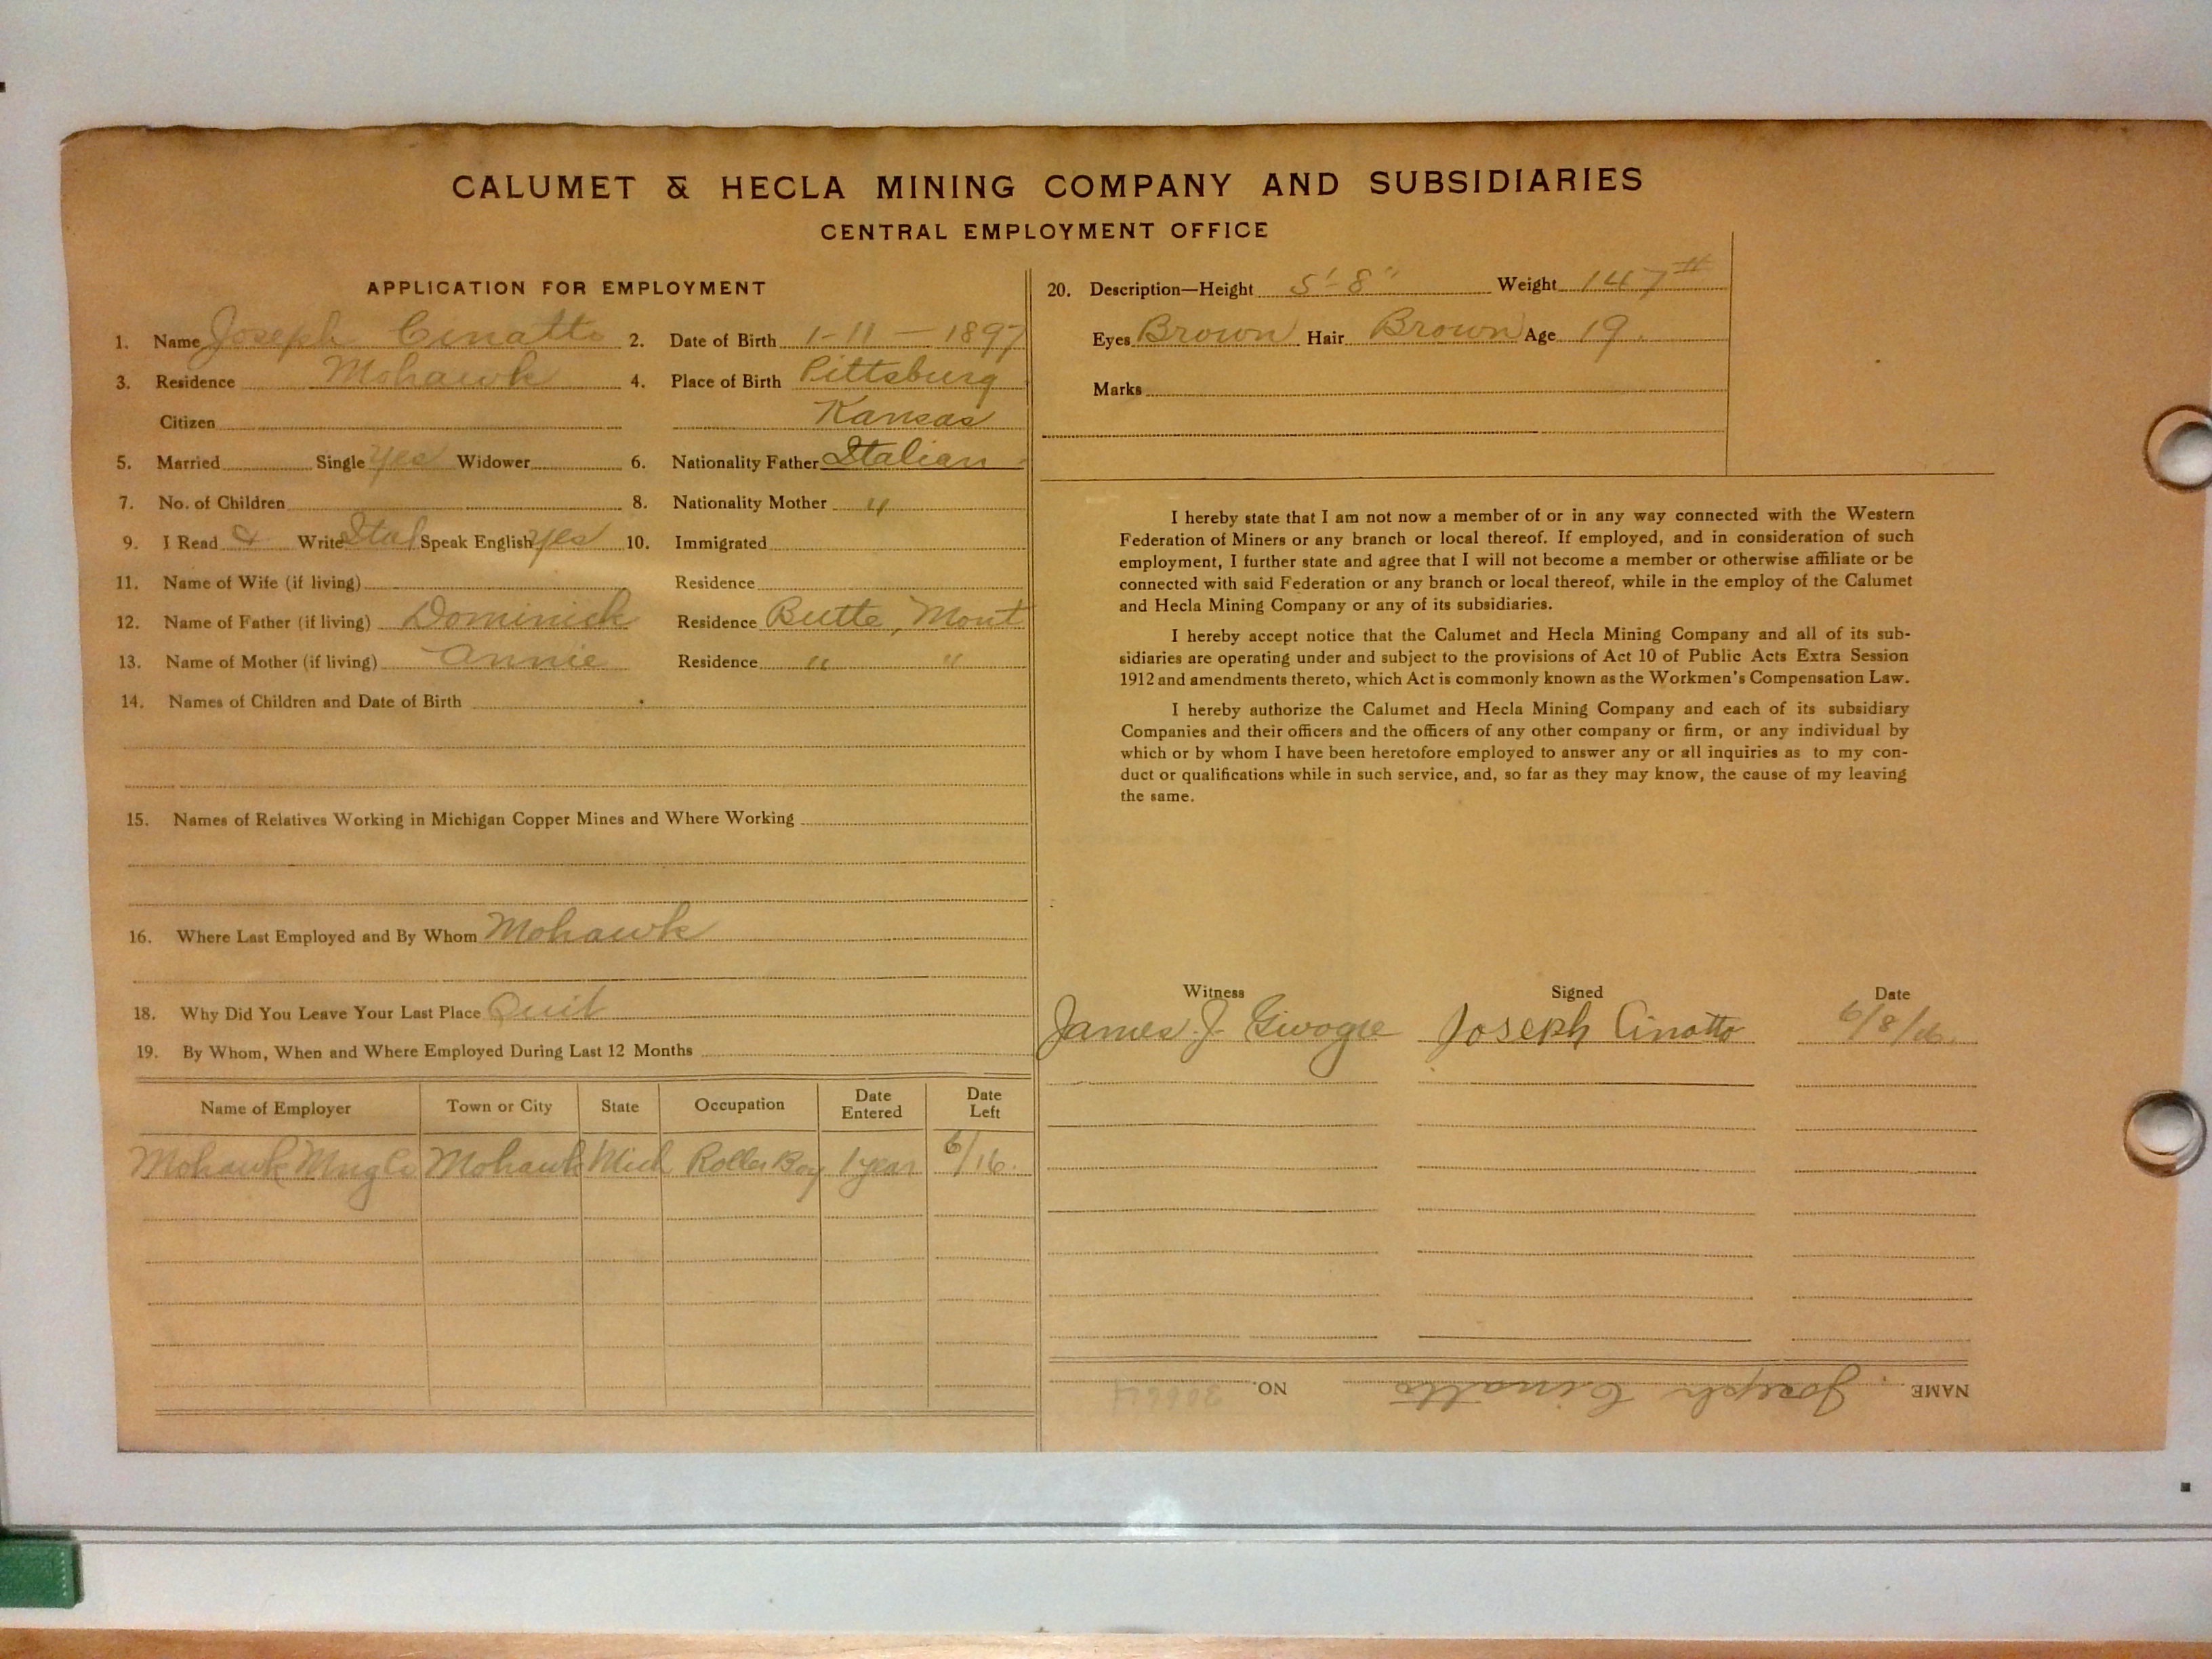 CALUMET & HECLA MINING COMPANY AND SUBSIDIARIES
CENTRAL EMPLOYMENT OFFICE
APPLICATION FOR EMPLOYMENT
1. Name Joseph Cinatto 2. Date of Birth 1-11-1897
3. Residence Mohawk 4. Place of Birth Pittsburg
Citizen Kansas
5. Married Single yes Widower 6. Nationality Father Italian
7. No. of Children 8. Nationality Mother "
9. I Read & Write Ital Speak English yes 10. Immigrated
11. Name of Wife (if living) Residence
12. Name of Father (if living) Dominick Residence Butte, Mont
13. Name of Mother (if living) Annie Residence " "
14. Names of Children and Date of Birth
15. Names of Relatives Working in Michigan Copper Mines and Where Working
16. Where Last Employed and By Whom Mohawk
18. Why Did You Leave Your Last Place Quit
19. By Whom, When and Where Employed During Last 12 Months
Name of Employer Town or City State Occupation Date Entered Date Left
Mohawk Mohawk Mich Roller Boy 1 year 6/16.
20. Description—Height 5'-8" Weight 147#
Eyes Brown Hair Brown Age 19.
Marks
I hereby state that I am not now a member of or in any way connected with the Western
Federation of Miners or any branch or local thereof. If employed, and in consideration of such
employment, I further state and agree that I will not become a member or otherwise affiliate or be
connected with said Federation or any branch or local thereof, while in the employ of the Calumet
and Hecla Mining Company or any of its subsidiaries.
I hereby accept notice that the Calumet and Hecla Mining Company and all of its sub-
sidiaries are operating under and subject to the provisions of Act 10 of Public Acts Extra Session
1912 and amendments thereto, which Act is commonly known as the Workmen's Compensation Law.
I hereby authorize the Calumet and Hecla Mining Company and each of its subsidiary
Companies and their officers and the officers of any other company or firm, or any individual by
which or by whom I have been heretofore employed to answer any or all inquiries as to my con-
duct or qualifications while in such service, and, so far as they may know, the cause of my leaving
the same.
Witness Signed Date
James J. Joseph Cinotto 6/8/16.
NAME Joseph Cinatto NO.